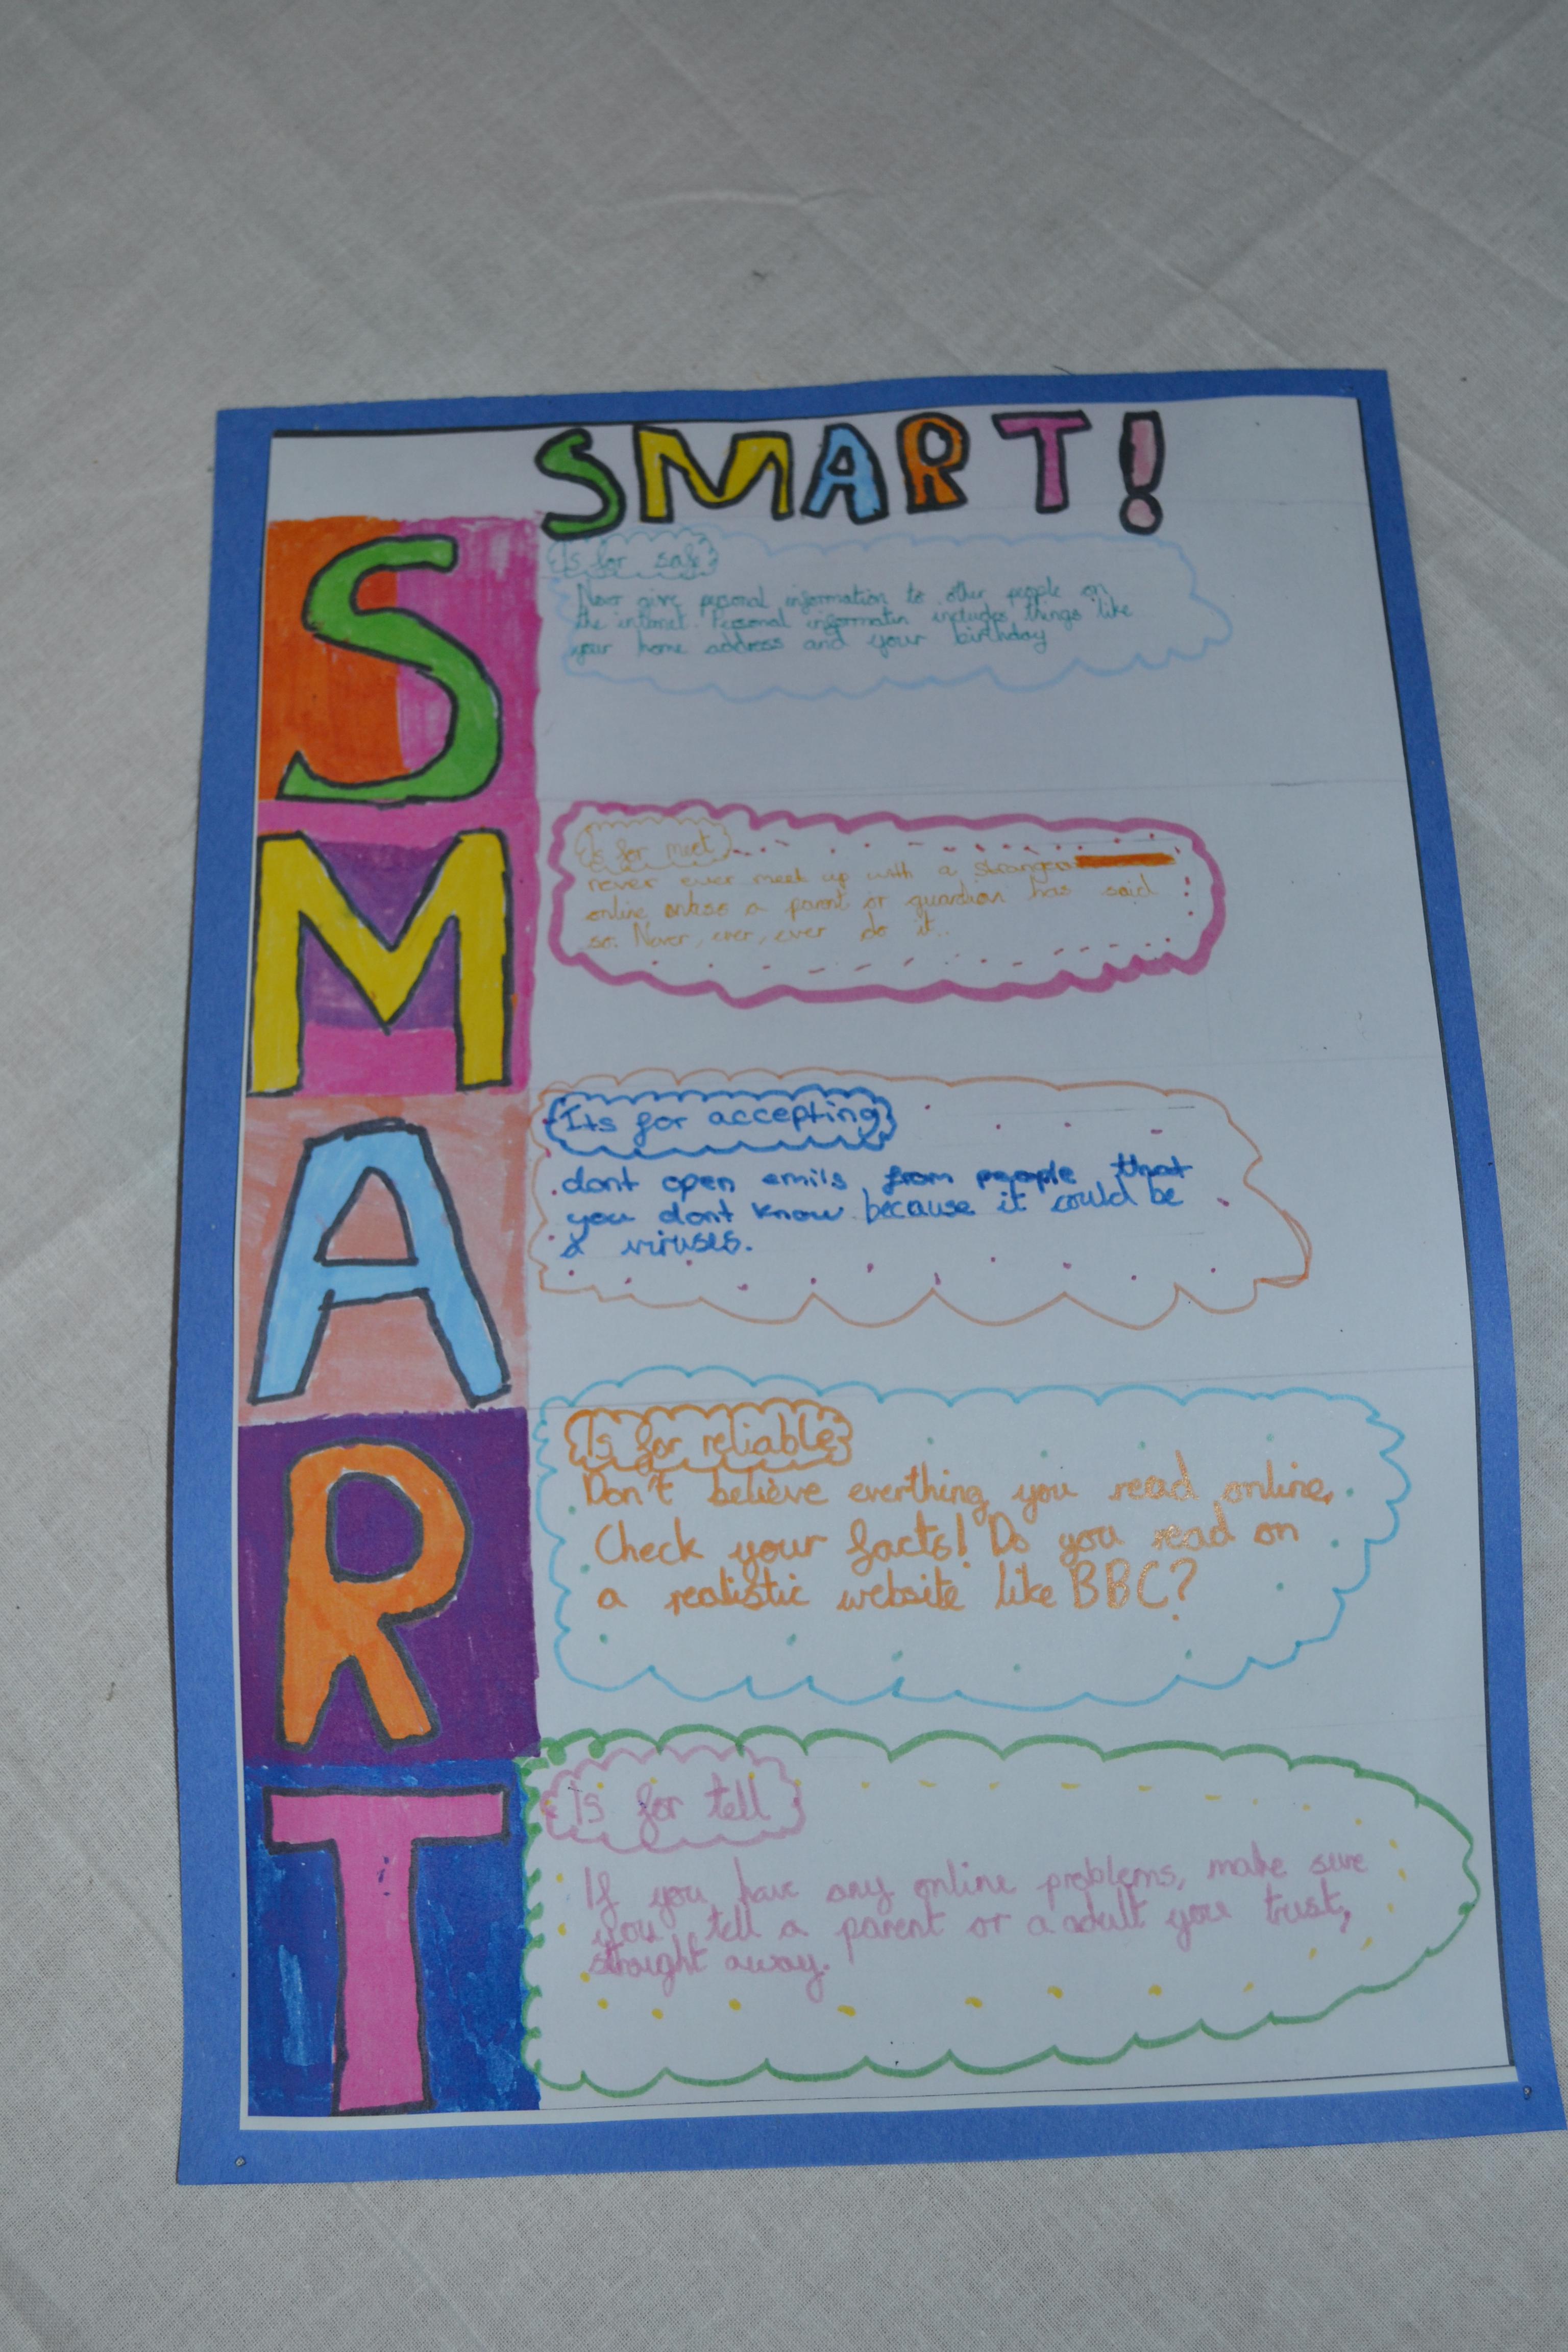 SMART!
S
Is for safe
Never give personal information to other people on
the internet. Personal informatin includes things like
your home address and your birthday
M
Is for meet
never ever meet up with a stranger
online unless a parent or guardian has said
so. Never, ever, ever do it..
A
Its for accepting
dont open emils from people that
you dont know because it could be
a viruses.
R
Is for reliable
Don't believe everthing you read online,
Check your facts! Do you read on
a realistic website like BBC?
T
Is for tell
If you have any online problems, make sure
you tell a parent or a adult you trust,
straight away.